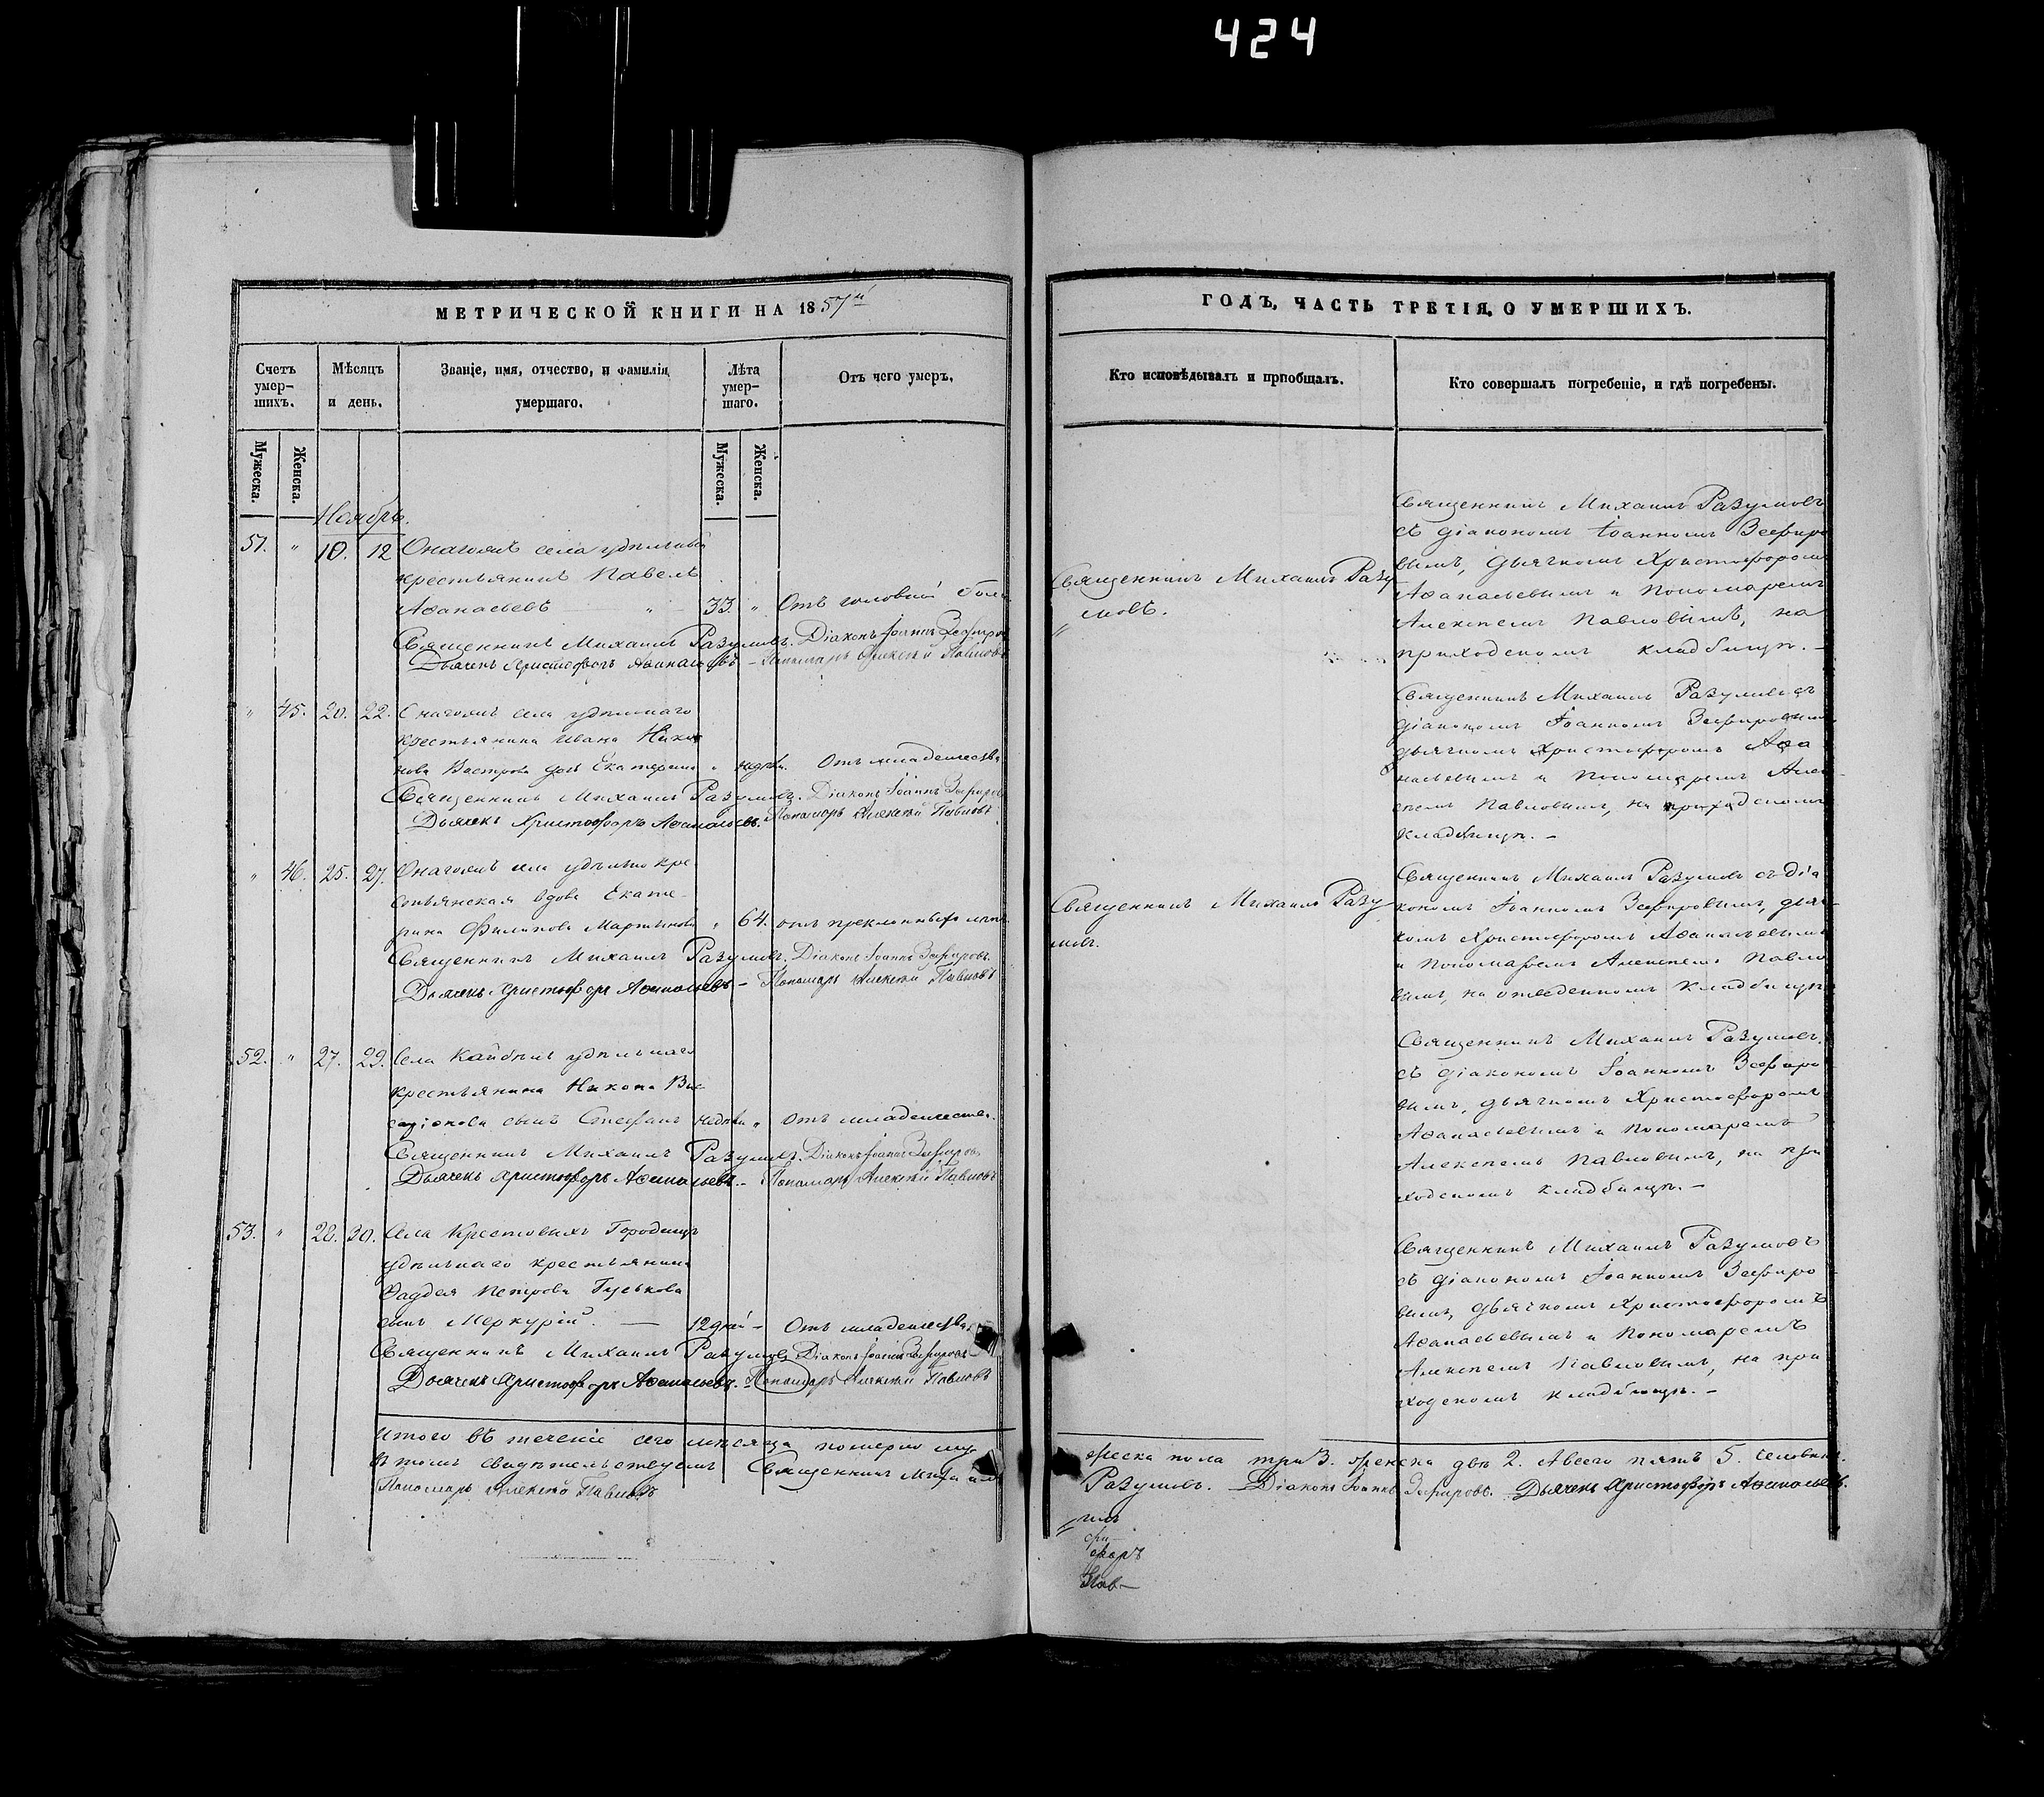 424
МЕТРИЧЕСКОЙ КНИГИ НА 1857й
Счетъ умер-шихъ.
Мѣсяцъ и день.
Званіе, имя, отчество, и фамилія умершаго.
Лѣта умер-шаго.
Отъ чего умеръ.
Мужеска.
Женска.
Мужеска.
Женска.
Ноябрь.
51. " 10. 12 Онагожъ села удѣльный
крестьянинъ Павелъ
Аѳанасьевъ 33. " Отъ головной боли
Священникъ Михаилъ Разумовъ. Діаконъ Іоаннъ Зефировъ
Дьячекъ Христофоръ Аѳанасьевъ – Пономарь Алексѣй Павловъ
" 45. 20. 22. Онагожъ села удѣльнаго
крестьянина Ивана
дочь Екатерина " недѣли. Отъ младенчества
Священникъ Михаилъ Разумовъ. Діаконъ Іоаннъ Зефировъ
Дьячекъ Христофоръ Аѳанасьевъ. Пономарь Алексѣй Павловъ
" 46. 25. 27. Онагожъ села удѣльно кре
стьянская вдова Екате
рина Филипова Мартынова " 64. отъ преклонныхъ лѣтъ
Священникъ Михаилъ Разумовъ. Діаконъ Іоаннъ Зефировъ.
Дьячекъ Христофоръ Аѳанасьевъ – Пономарь Алексѣй Павловъ
52. " 27. 29. Села Кайбѣлъ удѣльнаго
крестьянина Никона Вис
саріонова сынъ Стефанъ недѣли " отъ младенчества.
Священникъ Михаилъ Разумовъ. Діаконъ Іоаннъ Зефировъ
Дьячекъ Христофоръ Аѳанасьевъ. – Пономарь Алексѣй Павловъ
53. " 28. 30. Села Крестовыхъ Городищъ
удѣльнаго крестьянина
Ѳаддея Петрова Гуськова
сынъ Меркурій. — 12 дней – Отъ младенчества
Священникъ Михаилъ Разумовъ Діаконъ Іоаннъ Зефировъ
Дьячекъ Христофоръ Аѳанасьевъ. Пономарь Алексѣй Павловъ
Итого въ теченіе сего мѣсяца померло му
Въ томъ свидѣтельствуемъ Священникъ Михаилъ
Пономарь Алексѣй Павловъ
ГОДЪ, ЧАСТЬ ТРЕТІЯ, О УМЕРШИХЪ.
Кто исповѣдывалъ и пріобщалъ.
Кто совершалъ погребеніе, и гдѣ погребены.
Священникъ Михаилъ Разу
мовъ.
Священникъ Михаилъ Разумовъ
съ діакономъ Іоанномъ Зефиро
вымъ, дьячкомъ Христофоромъ
Аѳанасьевымъ и Пономаремъ
Алексѣемъ Павловымъ, на
приходскомъ кладбищѣ. –
Священникъ Михаилъ Разумовъ съ
діакономъ Іоанномъ Зефировымъ
дьячкомъ Христофоромъ Аѳа
насьевымъ и Пономаремъ Алек
сѣемъ Павловымъ, на приходскомъ
кладбищѣ. –
Священникъ Михаилъ Разу
мовъ.
Священникъ Михаилъ Разумовъ съ діа
кономъ Іоанномъ Зефировымъ, дьяч
комъ Христофоромъ Аѳанасьевымъ
и Пономаремъ Алексѣемъ Павло
вымъ, на отведенномъ кладбищѣ
Священникъ Михаилъ Разумовъ,
съ діакономъ Іоанномъ Зефиро
вымъ, дьячкомъ Христофоромъ
Аѳанасьевымъ и Пономаремъ
Алексѣемъ Павловымъ, на при
ходскомъ кладбищѣ. –
Священникъ Михаилъ Разумовъ
съ діакономъ Іоанномъ Зефиро
вымъ, дьячкомъ Христофоромъ
Аѳанасьевымъ и Пономаремъ
Алексѣемъ Павловымъ, на при
ходскомъ кладбищѣ. –
жеска пола три 3. женска двѣ 2. А всего пять 5. человѣкъ.
Разумовъ. Діаконъ Іоаннъ Зефировъ. Дьячекъ Христофоръ Аѳанасьевъ.